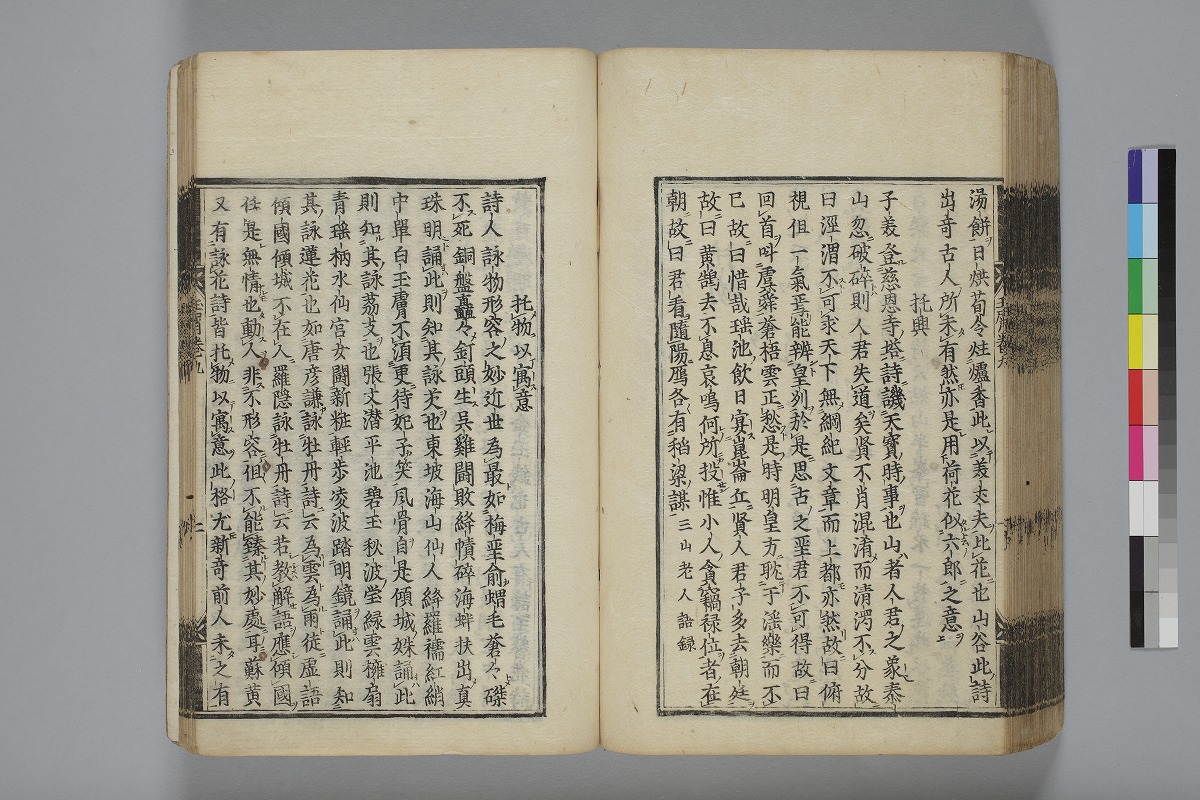 湯餅日烘荀令炷爐香此以美丈夫比花也山谷此詩
出奇古人所未有然亦是用荷花似六郎之意
托興
子美登慈恩寺塔詩譏天寶時事也山者人君之象秦
山忽破碎則人君失道矣賢不肖混淆而清濁不分故
曰涇渭不可求天下無綱紀文章而上都亦然故曰俯
視但一氣焉能辨皇州於是思古之聖君不可得故曰
回首叫虞舜蒼梧雲正愁是時明皇方耽于淫樂而不
已故曰惜哉瑶池飲日宴崑崙丘賢人君子多去朝廷
故曰黄鵠去不息哀鳴何所投惟小人貪竊禄位者在
朝故曰君看隨陽鴈各有稻粱謀 三山老人語録
托物以寓意
詩人詠物形容之妙近世為最如梅聖俞蝟毛蒼々磔
不死銅盤矗々釘頭生呉雞闘敗絳幘碎海蚌扶出真
珠明誦此則知其詠芡也東坡海山仙人絳羅襦紅綃
中單白玉膚不湏更待妃子笑風骨自是傾城姝誦此
則知其詠茘支也張文潜平池碧玉秋波瑩緑雲擁扇
青瑤柄水仙宮女闘新粧輕歩凌波踏明鏡誦此則知
其詠蓮花也如唐彦謙詠牡丹詩云為雲為雨徒虚語
傾國傾城不在人羅隠詠牡丹詩云若教解語應傾國
任是無情也動人非不形容但不能臻其妙處耳蘇黄
又有詠花詩皆托物以寓意此格尤新奇前人未之有
玉屑巻九
二